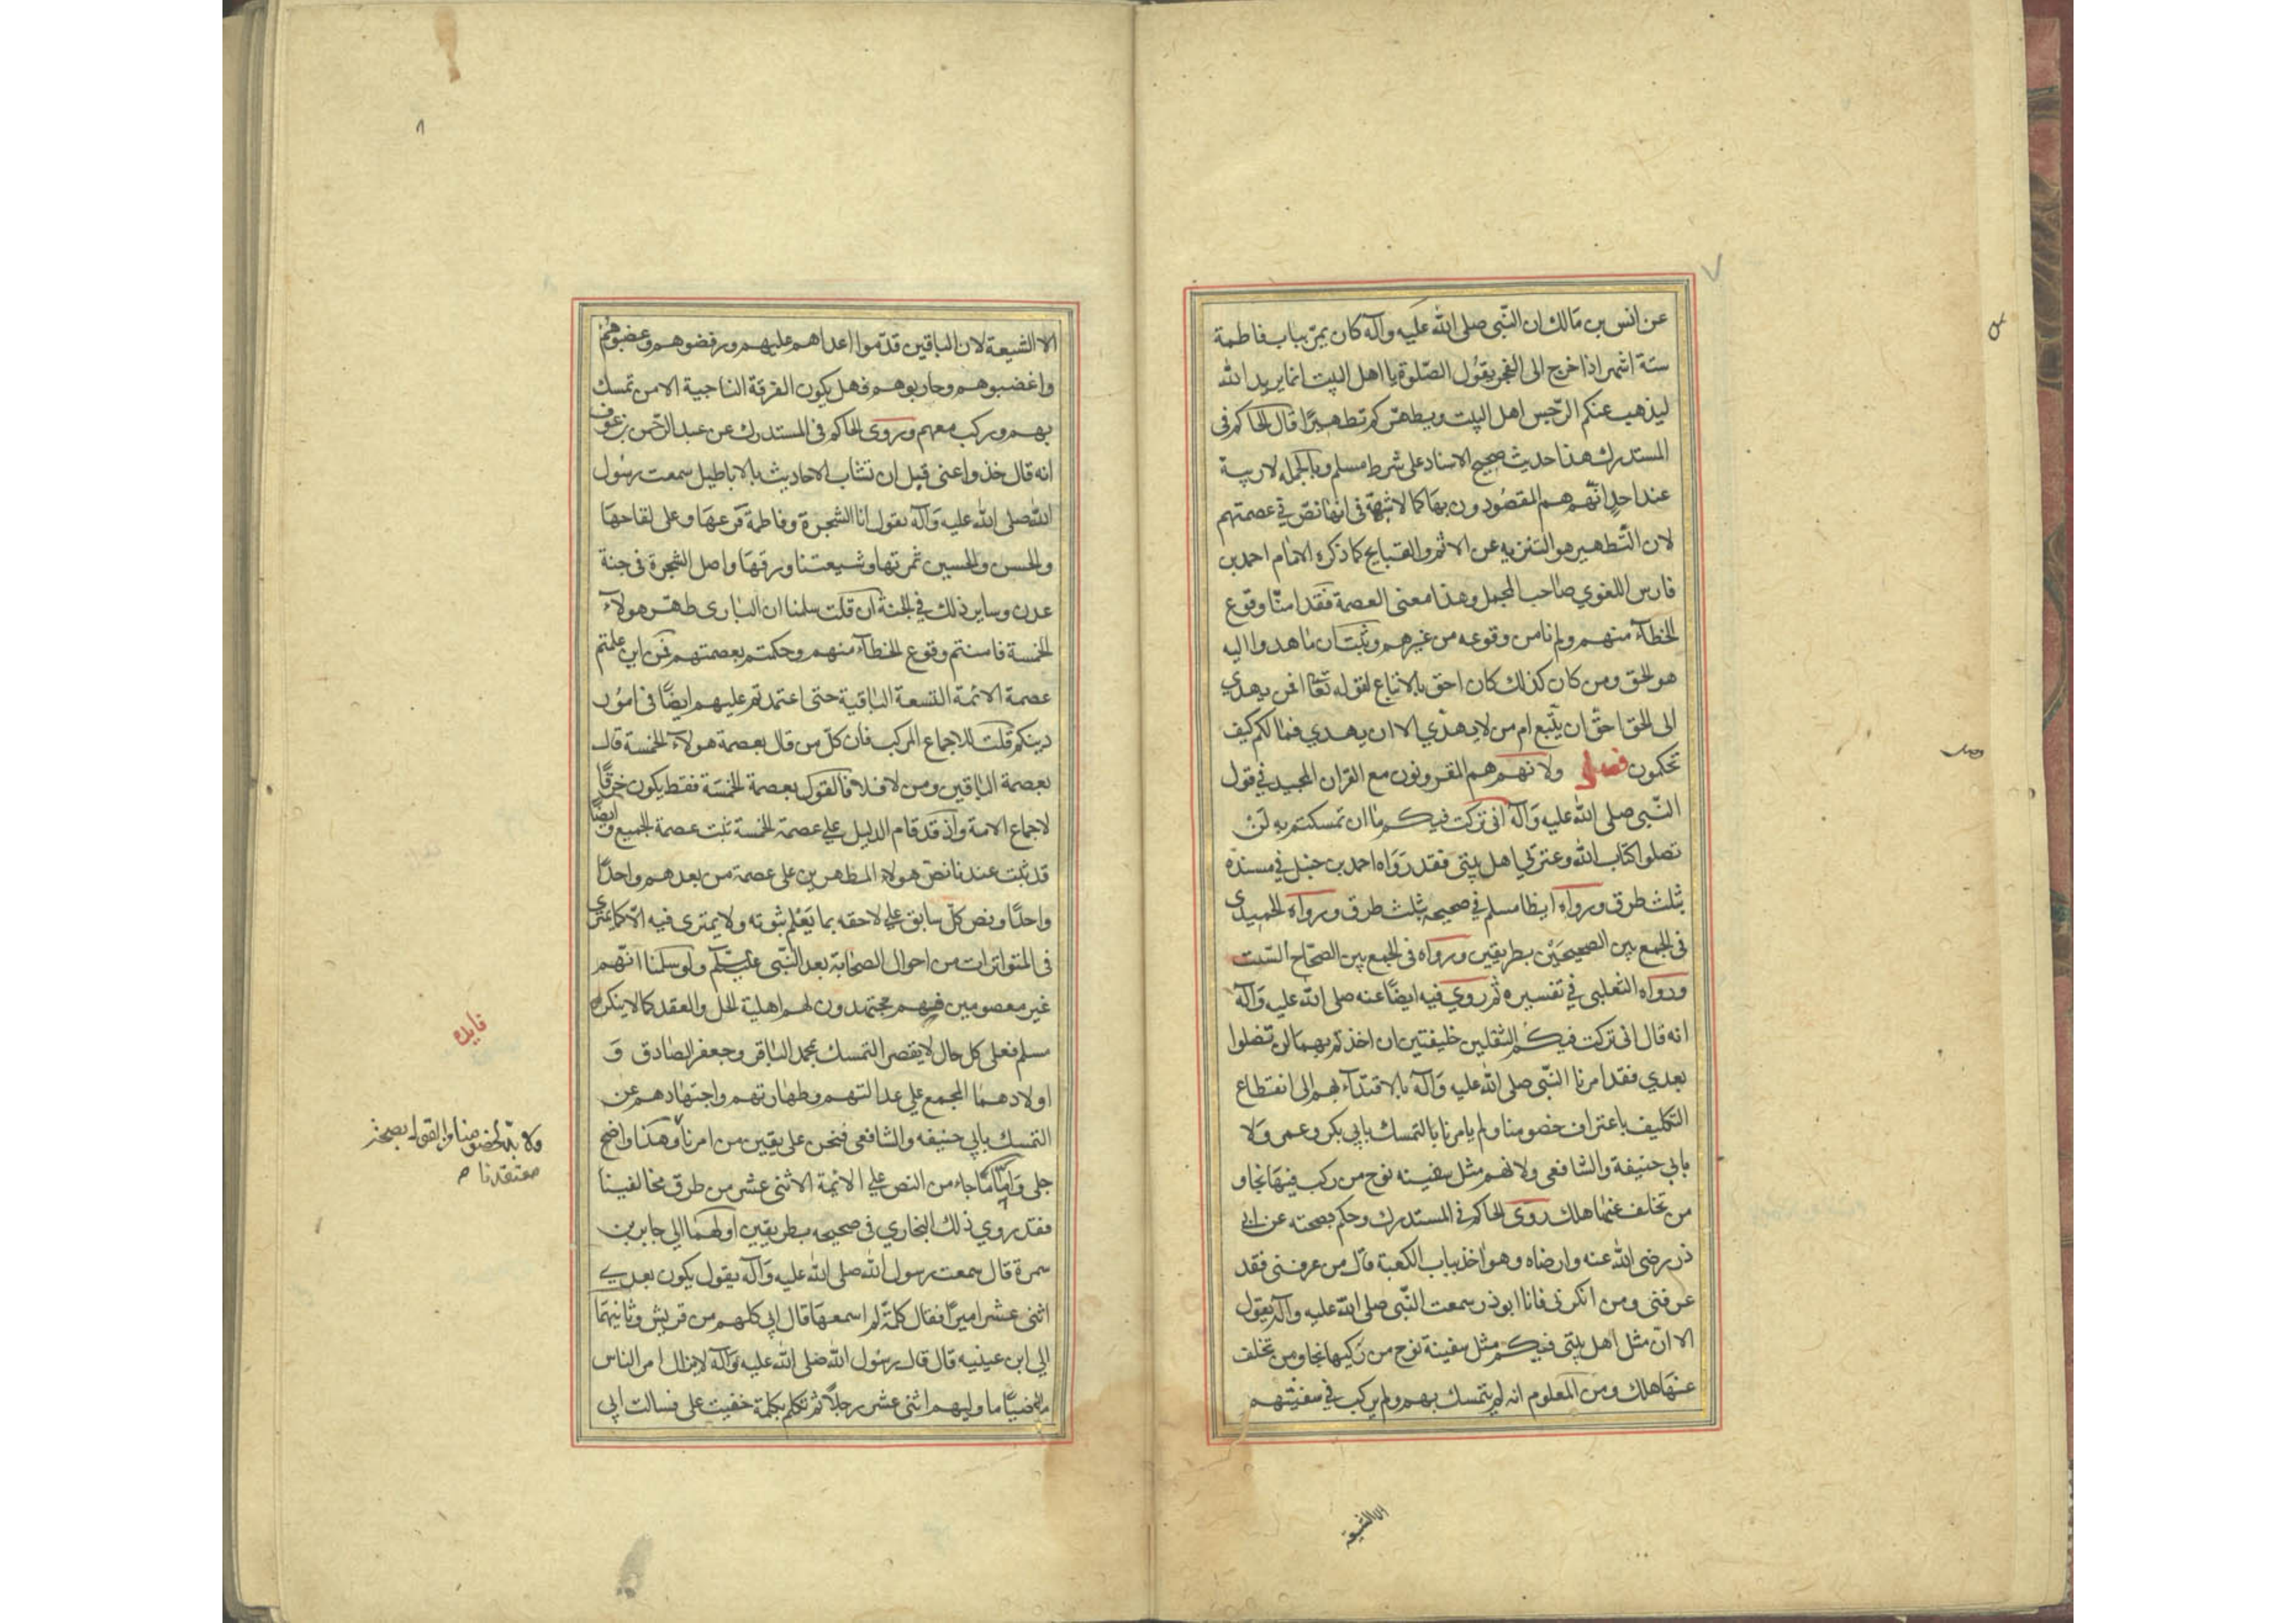 ٧
عن انس بن مالك ان النّبى صلى الله عليه وآله كان يمرّ بباب فاطمة
ستة اشهر اذا خرج الى الفجر يقول الصّلوة يا اهل البيت انما يريد الله
ليذهب عنكم الرّجس اهل البيت ويطهّركم تطهيرًا قال الحاكم فى
المستدرك هذا حديث صحيح الاسناد على شرط مسلم وبالجمله لا ريبة
عند احد انّهم هم المقصودون بها كما لا شبهة فى انها نصّ في عصمتهم
لان التّطهير هو التنزيه عن الاثم والقبايح كما ذكره الامام احمد بن
فارس اللغوي صاحب المجمل وهذا معنى العصمة فقد امنّا وقوع
الخطآء منهم ولم نامن وقوعه من غيرهم وثبت ان ما هدوا اليه
هو الحق ومن كان كذلك كان احق بالاتباع لقوله تعا افمن يهدي
الى الحق احق ان يتّبع ام من لا يهدّي الا ان يهدي فما لكم كيف
تحكمون فصل ولانهم هم المقرونون مع القران المجيد في قول
النّبى صلى الله عليه وآله انى تركت فيكم ما ان تمسكتم به لن
تضلوا كتاب الله وعترتى اهل بيتى فقد رواه احمد بن حنبل في مسنده
بثلث طرق ورواه ايضا مسلم في صحيحه بثلث طرق ورواه الحميدى
فى الجمع بين الصحيحين بطريقين ورواه فى الجمع بين الصّحاح السّت
ورواه الثعلبى في تفسيره ثم روي فيه ايضًا عنه صلى الله عليه وآله
انه قال انى تركت فيكم الثقلين خليفتين ان اخذتم بهما لن تضلوا
بعدي فقد امرنا النّبى صلى الله عليه وآله بالاقتدآء بهم الى انقطاع
التكليف باعتراف خصومنا ولم يامرنا بالتمسك بابي بكر وعمر ولا
بابي حنيفة والشافعى ولانهم مثل سفينه نوح من ركب فيها نجا و
من تخلف عنها هلك روى الحاكم فى المستدرك وحكم بصحته عن ابى
ذر رضى الله عنه وارضاه وهو اخذ بباب الكعبة قال من عرفنى فقد
عرفنى ومن انكرنى فانا ابوذر سمعت النّبى صلى الله عليه وآله يقول
الا انّ مثل اهل بيتى فيكم مثل سفينة نوح من ركبها نجا ومن تخلف
عنها هلك ومن المعلوم انه لم يتمسك بهم ولم يركب في سفينتهم
الا الشيعة
٨
الا الشيعة لان الباقين قدّموا اعداهم عليهم ورفضوهم وغصبوهم
واغضبوهم وحاربوهم فهل يكون الفرقة الناجية الا من تمسك
بهم وركب معهم وروى الحاكم فى المستدرك عن عبد الرّحمن بن عوف
انه قال خذوا عنى قبل ان تشاب الاحاديث بالاباطيل سمعت رسول
الله صلى الله عليه وآله يقول انا الشجرة وفاطمة فرعها وعلى لقاحها
والحسن والحسين ثمرتها وشيعتنا ورقها واصل الشجرة فى جنة
عدن وساير ذلك في الجنة ان قلت سلمنا ان البارى طهّر هولآء
الخمسة فامنتم وقوع الخطآء منهم وحكمتم بعصمتهم فمن اين علمتم
عصمة الائمة التسعة الباقية حتى اعتمدتم عليهم ايضًا فى امور
دينكم قلت للاجماع المركب فان كلّ من قال بعصمة هولآء الخمسة قال
بعصمة الباقين ومن لا فلا فالقول بعصمة الخمسة فقط يكون خرقًا
لاجماع الامة واذ قد قام الدليل على عصمة الخمسة ثبت عصمة الجميع وايضًا
قد ثبت عندنا نصّ هولاء المطهرين على عصمة من بعدهم واحدًا
واحدًا ونص كلّ سابق على لاحقه بما يعلم ثبوته ولا يمترى فيه الّا كما يمترى
فى المتواترات من احوال الصّحابة بعد النّبى ولو سلمنا انّهم
غير معصومين فهم مجتهدون لهم اهلية الحل والعقد كما لا ينكره
مسلم فعلى كل حال لا يقصر التمسك بمحمد الباقر وجعفر الصادق و
اولادهما المجمع على عدالتهم وطهارتهم واجتهادهم عن
التمسك بابي حنيفه والشافعى فنحن على يقين من امرنا وهذا واضح
جلى وامّا ما جاء من النص على الائمة الاثنى عشر من طرق مخالفينا
فقد روي ذلك البخاري فى صحيحه بطريقين اولهما الى جابر بن
سمرة قال سمعت رسول الله صلى الله عليه وآله يقول يكون بعدى
اثنى عشر اميرًا فقال كلمة لم اسمعها قال ابي كلهم من قريش وثانيهما
الى ابن عيينه قال قال رسول الله صلى الله عليه وآله لا يزال امر الناس
ماضيًا ما وليهم اثنى عشر رجلًا ثم تكلم بكلمة خفيت على فسالت ابي
فايده
معتقدنا